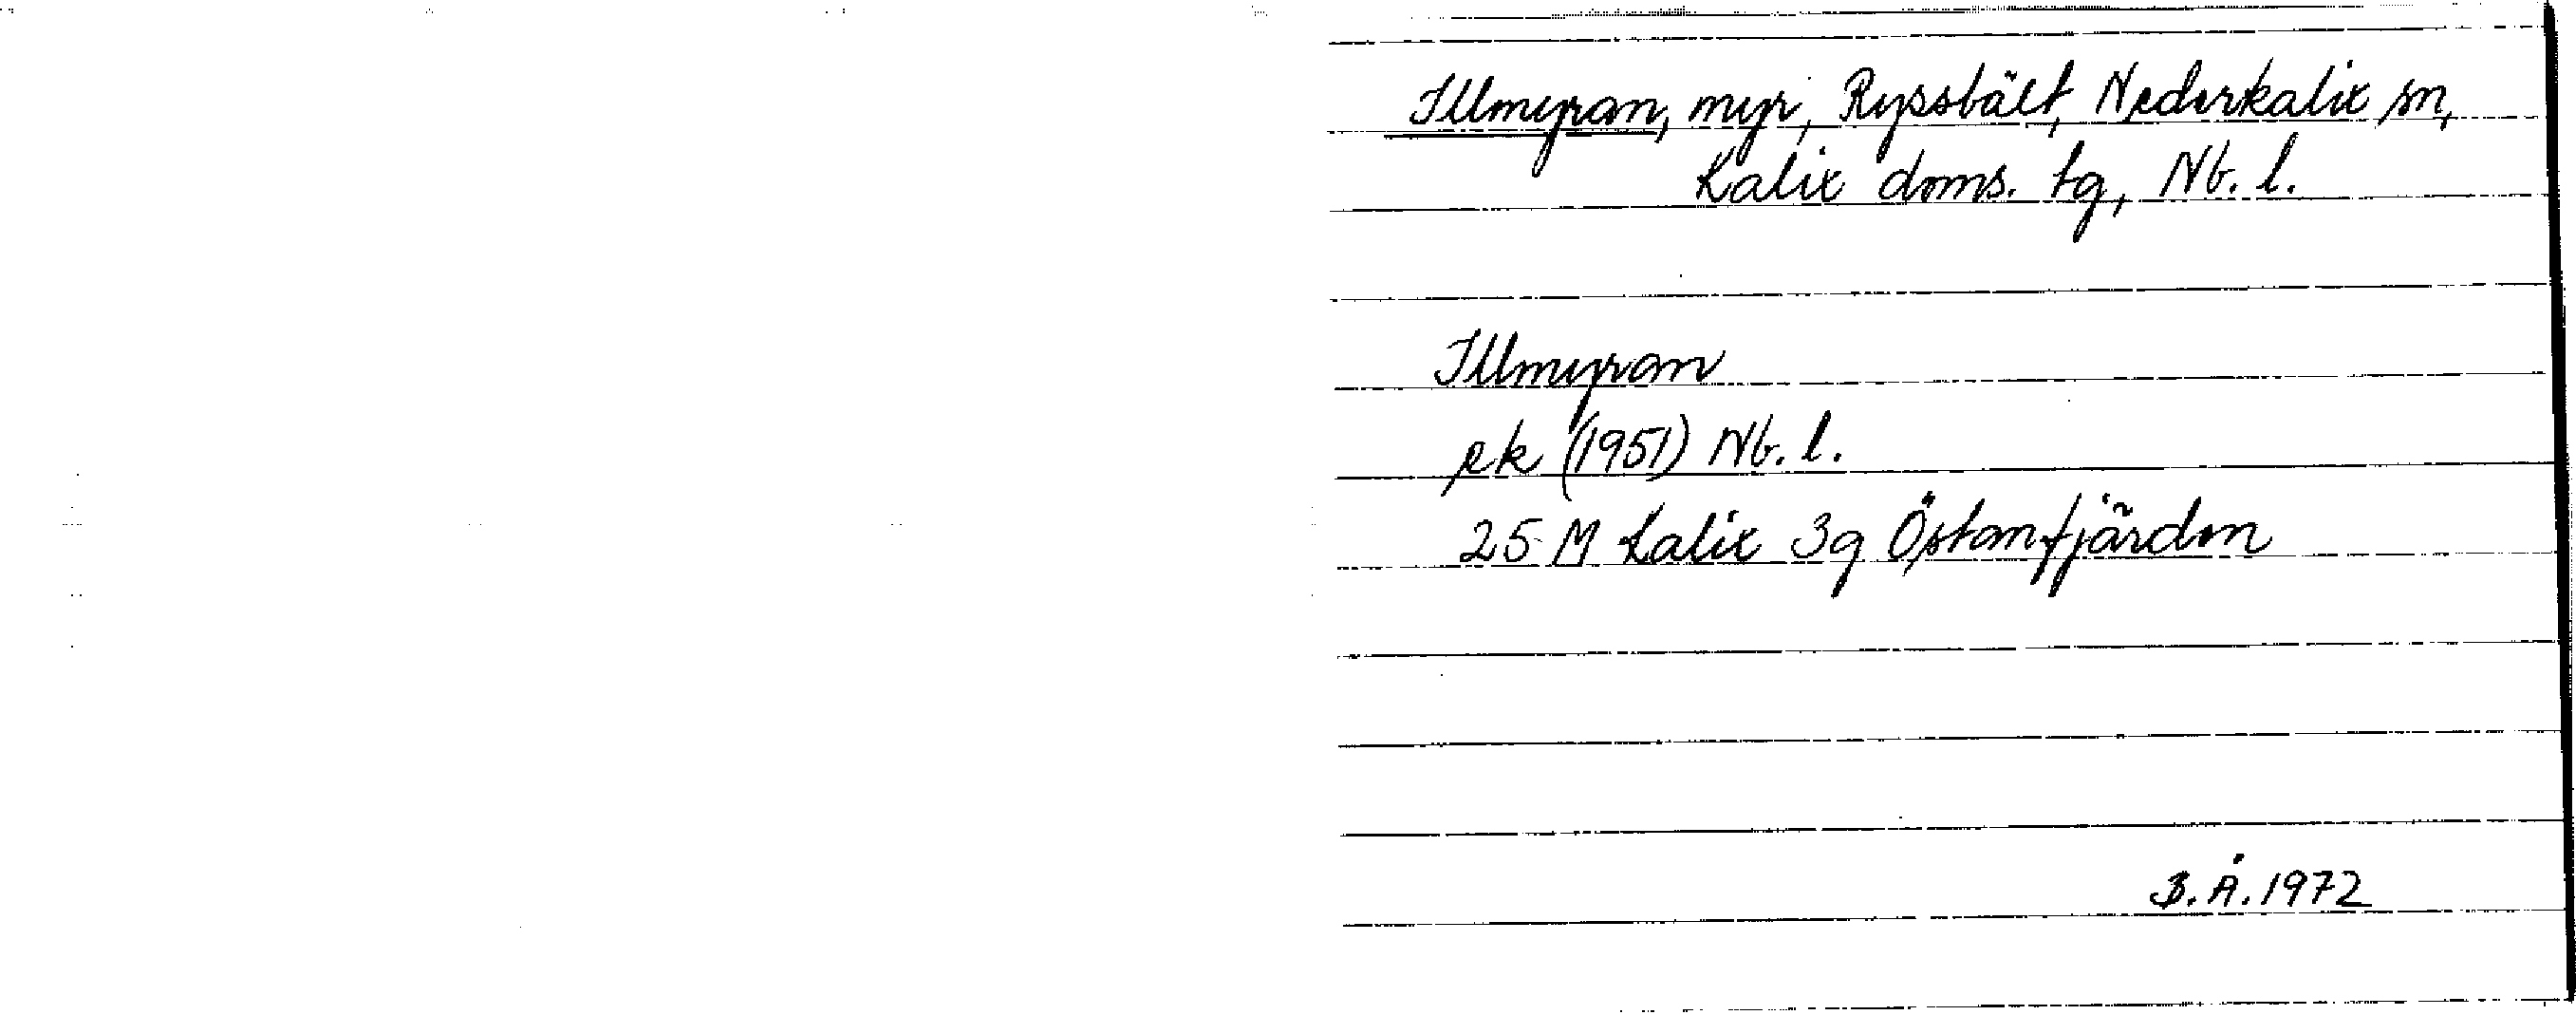 Illmyran, myr, Ryssbält, Nederkalix sn,
Kalix doms. tg, Nb. l.
Illmyran
ek (1951) Nb. l.
25 M Kalix 3g Östanfjärden
B.Å. 1972